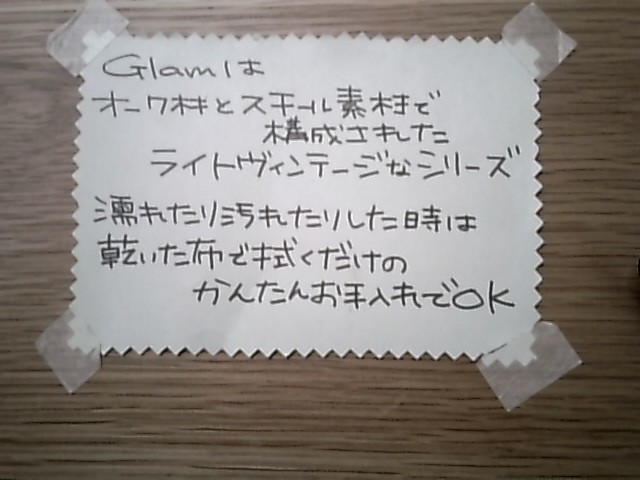 Glamは
オーク材とスチール素材で
構成された
ライトヴィンテージなシリーズ
濡れたり汚れたりした時は
乾いた布で拭くだけの
かんたんお手入れでOK